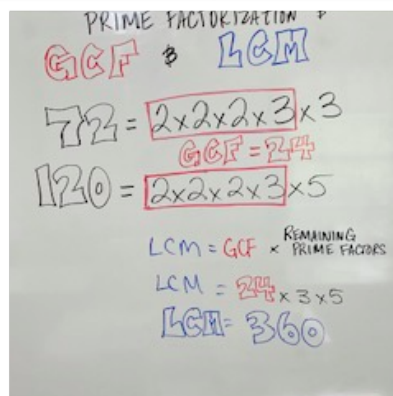 PRIME FACTORIZATION &
GCF & LCM
72 = 2x2x2x3x3
GCF = 24
120 = 2x2x2x3x5
LCM = GCF x REMAINING PRIME FACTORS
LCM = 24 x 3 x 5
LCM = 360